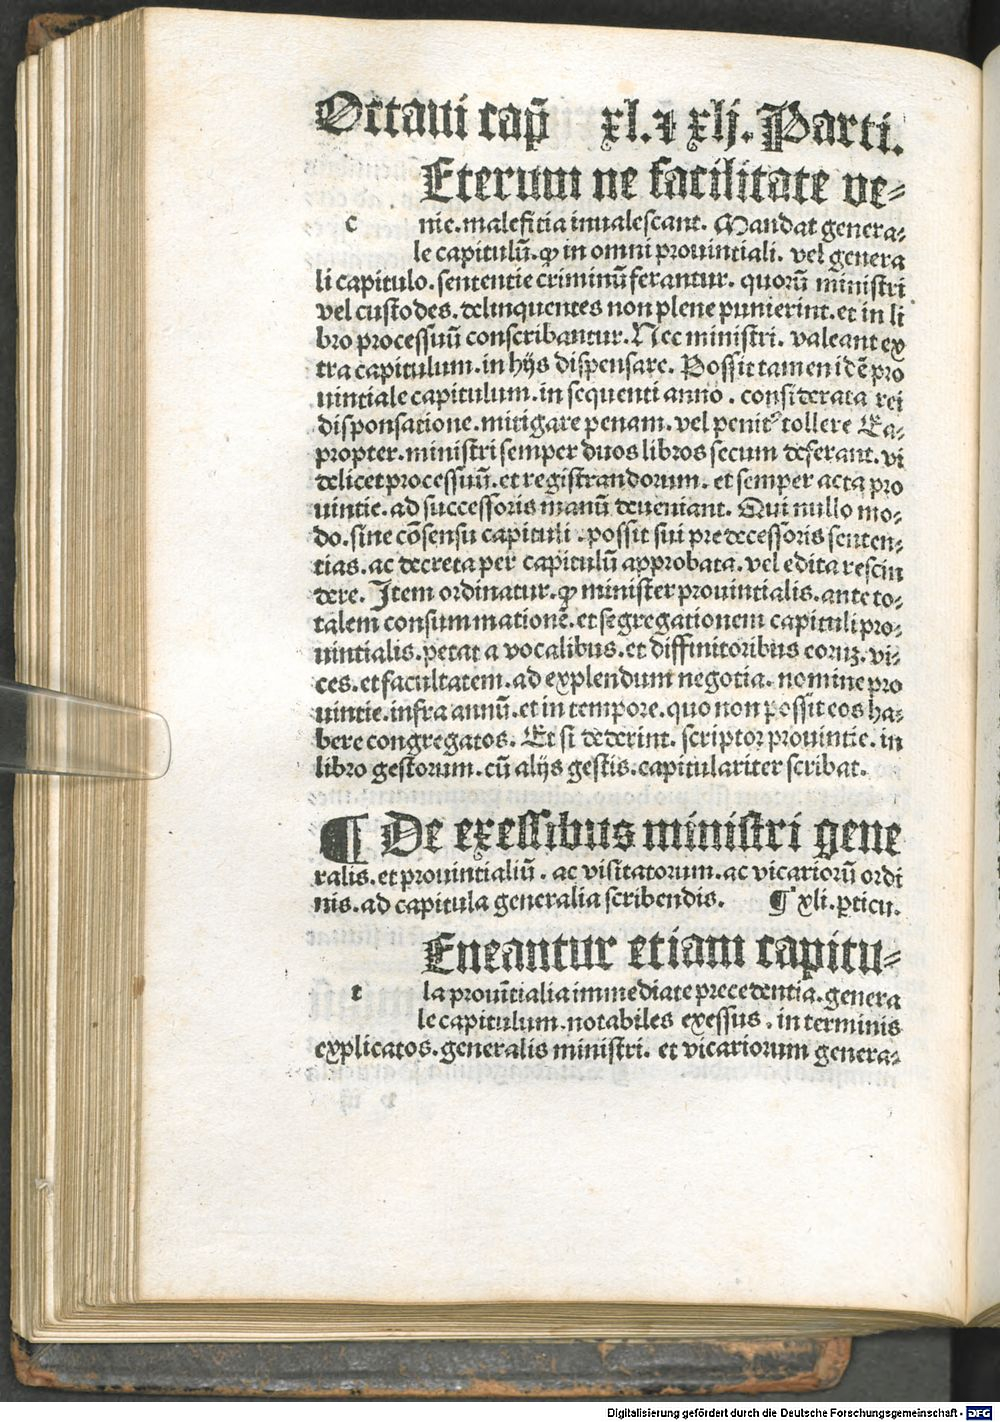 Octaui cap̄ xl. ⁊ xlj. Parti.
Eterum ne facilitate ve⸗
c nie. malefitia inualescant. Mandat genera⸗
le capitulū. ꝙ in omni prouintiali. vel genera
li capitulo. sententie criminū ferantur. quorū ministri
vel custodes. delinquentes non plene punierint. et in li
bro processuū conscribantur. Nec ministri. valeant ex
tra capitulum. in hijs dispensare. Possit tamen idē pro
uintiale capitulum. in sequenti anno. considerata rei
disponsatione. mitigare penam. vel penitꝰ tollere Ea⸗
propter. ministri semper duos libros secum deferant. vi
delicet processuū. et registrandorum. et semper acta pro
uintie. ad successoris manū deueniant. Qui nullo mo⸗
do. sine cōsensu capituli. possit sui predecessoris senten⸗
tias. ac decreta per capitulū approbata. vel edita rescin
dere. Item ordinatur. ꝙ minister prouintialis. ante to⸗
talem consummationē. et segregationem capituli pro⸗
uintialis. petat a vocalibus. et diffinitoribus eoruꝫ. vi⸗
ces. et facultatem. ad explendum negotia. nomine pro
uintie. infra annū. et in tempore. quo non possit eos ha⸗
bere congregatos. Et si dederint. scriptor prouintie. in
libro gestorum. cū alijs gestis. capitulariter scribat.
¶ De exessibus ministri gene
ralis. et prouintialiū. ac visitatorum. ac vicariorū ordi
nis. ad capitula generalia scribendis. ¶ xli. ꝑticu.
Eneantur etiam capitu⸗
t la prouītialia immediate precedentia. genera
le capitulum. notabiles exessus. in terminis
explicatos. generalis ministri. et vicariorum genera⸗
Digitalisierung gefördert durch die Deutsche Forschungsgemeinschaft - DFG